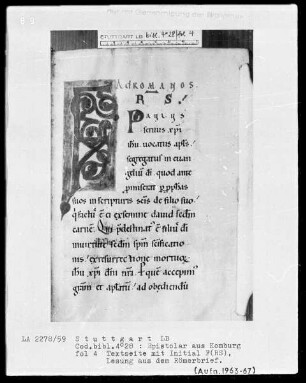 STUTTGART LB bibl. 4° 28 fol. 4
AD ROMANOS
F R S.
Paulus
servus xpi
ihu vocatus apls.
segregatus in euan
gelium di. quod ante
promiserat per pphas
suos in scripturis scis de filio suo
qui factus est ei ex semine david sedm
carne. Qui pdestinatus est filius di
in uirtute sedm spm scificatio
nis. ex resurrectione mortuorum
ihu xpi dni nri. P quem accepimus
gratiam et aplatum. ad obediendum
LA 2278/59 Stuttgart LB
Cod.bibl.4°28 : Epistolar aus Komburg
fol 4 Textseite mit Initial F(RS),
Lesung aus dem Römerbrief.
(Aufn.1963-67)